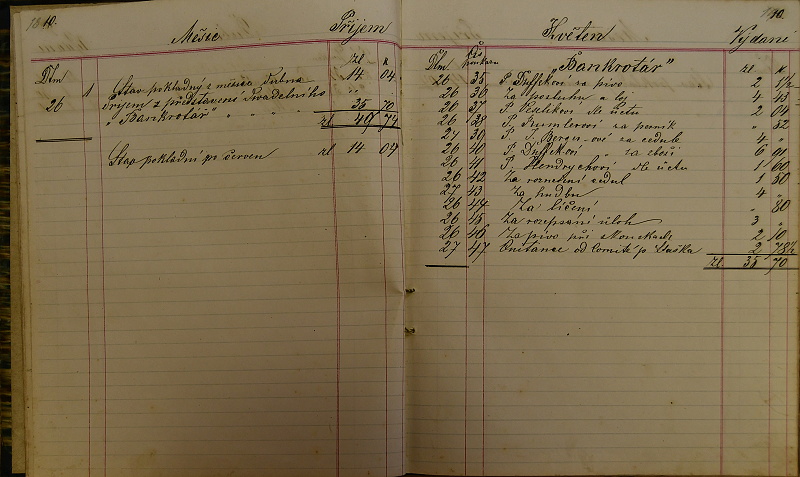 10.
Měsíc
Příjem
Dtm
zl k
1 Stav pokladny z měsíce Dubna 14 04
26 Příjem z představení divadelního
"Bankrotář" " " " 35 70
zl 49 74
Stav pokladní pr červen zl 14 04
10.
Květen
Vydání
Dtm
Čís
"Bankrotář"
zl k
26 35 P. Duffkovi za pivo 2 1½
26 36 Za posluhu a loj 4 43
26 37 P. dle účtu 2 04
26 38 P. za perník " 32
27 39 P. J. Berger-ové za cedule 4 "
26 40 P. Duffkovi " za zboží 6 91
26 41 P. Hendrychovi dle účtu 1 60
26 42 Za roznešení cedul 1 50
27 43 Za hudbu 4 "
26 44 Za líčení " 80
26 45 Za rozepsání úloh 3 "
26 46 Za pivo při zkouškách 2 10
27 47 Quitance od p. Duška 2 78½
zl 35 70